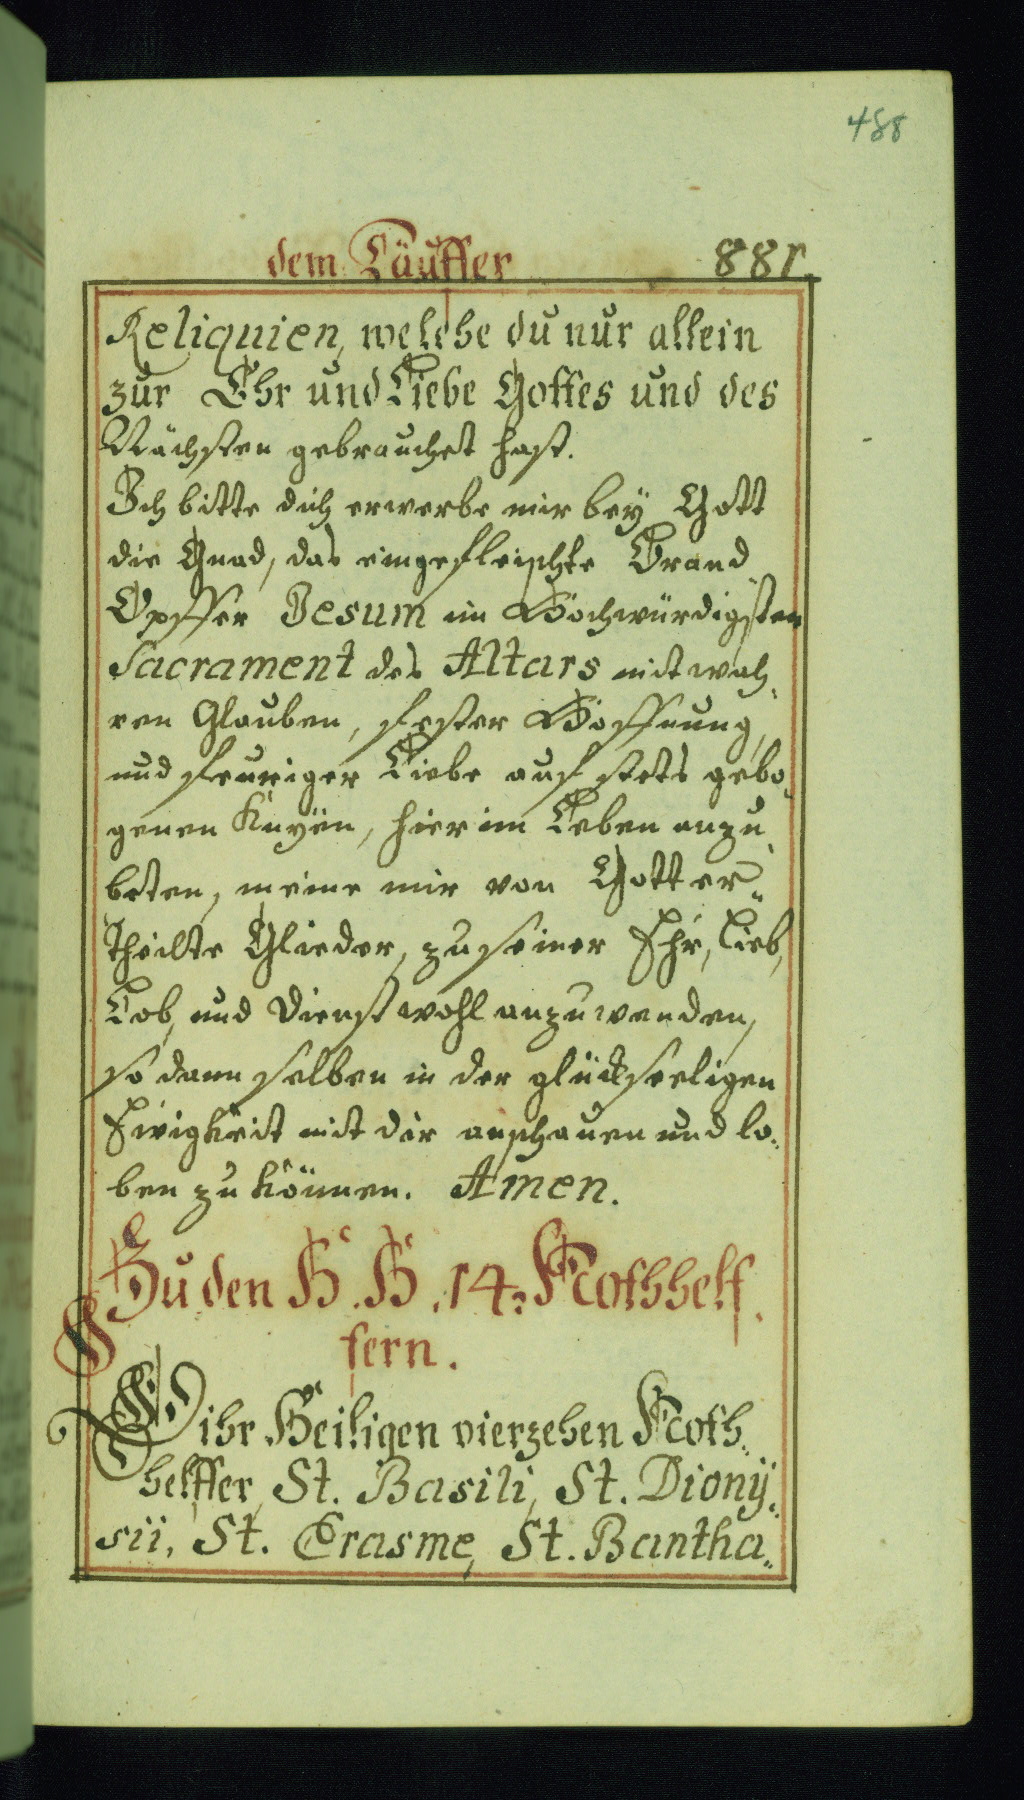 488
dem Täuffer 881.
Reliquien, welche du nur allein
zur Ehr und Liebe Gottes und des
Nächsten gebrauchet hast.
Ich bitte dich erwerbe mir bey Gott
die Gnad, das eingefleischte Brand
Opffer Jesum im Hochwürdigsten
Sacrament des Altars mit wah„
ren Glauben, fester Hoffnung,
und feuriger Liebe auf stets gebo„
genen Knyën, hier im Leben anzu„
beten, meine mir von Gott er„
theilte Glieder, zu seiner Ehr, Lieb,
Lob, und Dienst wohl anzuwenden,
so dann selben in der glückseeligen
Ewigkeit mit dir anschauen und lo„
ben zu können. Amen.
Zu den H. H. 14: Nothhelf„
fern.
O ihr Heiligen vierzehen Noth„
helffer, St. Basili, St. Dionÿ„
sii, St. Erasme, St. Bantha„